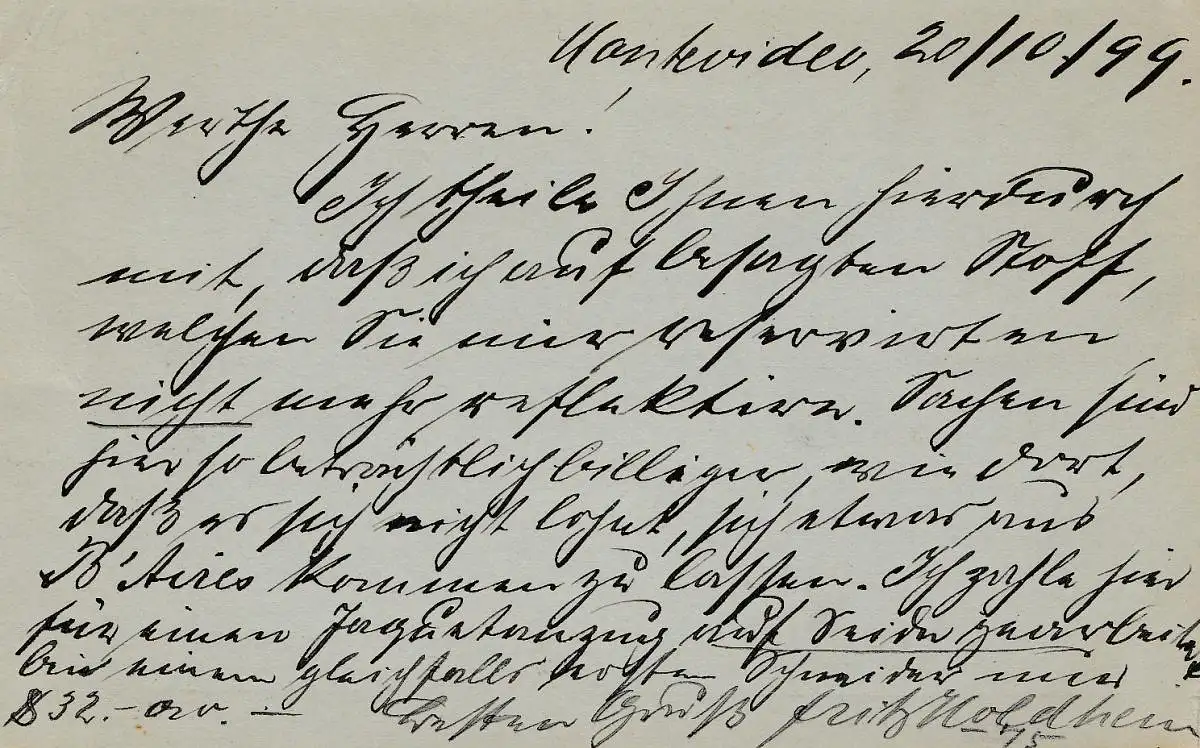 Montevideo, 20/10/99.
Werthe Herren!
Ich theile Ihnen hierdurch
mit, daß ich auf besagten Stoff,
welchen Sie mir reservirten,
nicht mehr reflektire. Sachen sind
hier so beträchtlich billiger, wie dort,
daß es sich nicht lohnt, sich etwas aus
B'Aires kommen zu lassen. Ich zahle hier
für einen Jaquetanzug auf Seide gearbeitet
bei einem gleichfalls ersten Schneider nur
$ 32.- oro. —
Besten Gruß Fritz Holdheim